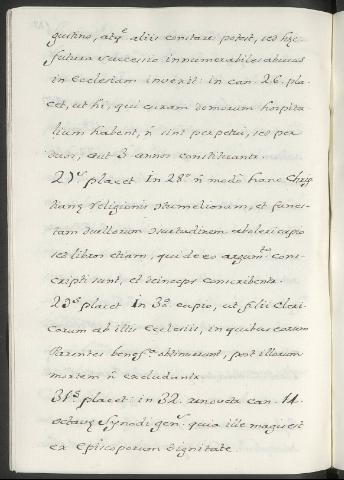 gustino, atq̃ aliis constare potest, sed hęc
futura successio innumerabiles abusus
in Ecclesiam invexit: in can. 26. pla-
cet, ut hi, qui curam domorum hospita-
lium habent, ñ sint perpetui, sed per
duos, aut 3 annos constituantr.
27.s placet. In 28.o ñ modo hanc Chris
tianę religionis contumeliam, et funes-
tam duellorum consuetudinem aboleri cupio
sed libros etiam, qui de eo argum.to cons-
cripti sunt, et deinceps conscribentr.
29.s placet. In 30. cupio, ut filii Cleri-
corum ab illis Ecclesiis, in quibus eorum
Parentes benef.a obtinuerunt, post illorum
mortem ñ excludantr.
31.s placet: in 32. renovetr can. 14.
octavę Synodi gen. quia ille magis est
ex Ep̃iscoporum dignitate.